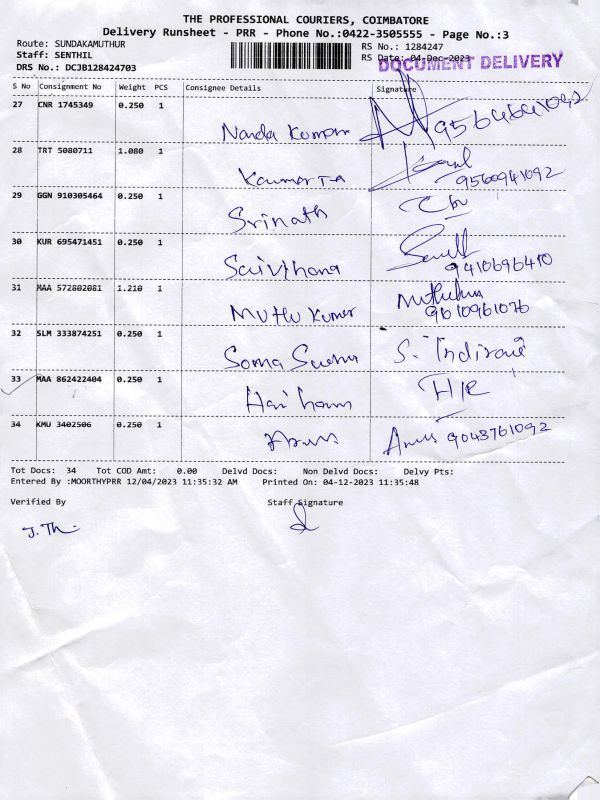 THE PROFESSIONAL COURIERS, COIMBATORE
Delivery Runsheet - PRR - Phone No.:0422-3505555 - Page No.:3
Route: SUNDAKAMUTHUR RS No.: 1284247
Staff: SENTHIL RS Date: 04-Dec-2023
DOCUMENT DELIVERY
DRS No.: DCJB128424703
S No Consignment No Weight PCS Consignee Details Signature
27 CNR 1745349 0.250 1
Nanda Kumar
28 TRT 5080711 1.080 1
9560941092
29 GGN 910305464 0.250 1
Srinath
30 KUR 695471451 0.250 1
9410696410
31 MAA 572802081 1.210 1
Muthu Kumar 9610961076
32 SLM 333874251 0.250 1
Soma S. Indirani
33 MAA 862422404 0.250 1
Hari
34 KMU 3402506 0.250 1
9043761092
Tot Docs: 34 Tot COD Amt: 0.00 Delvd Docs: Non Delvd Docs: Delvy Pts:
Entered By :MOORTHYPRR 12/04/2023 11:35:32 AM Printed On: 04-12-2023 11:35:48
Verified By Staff Signature
J. Th